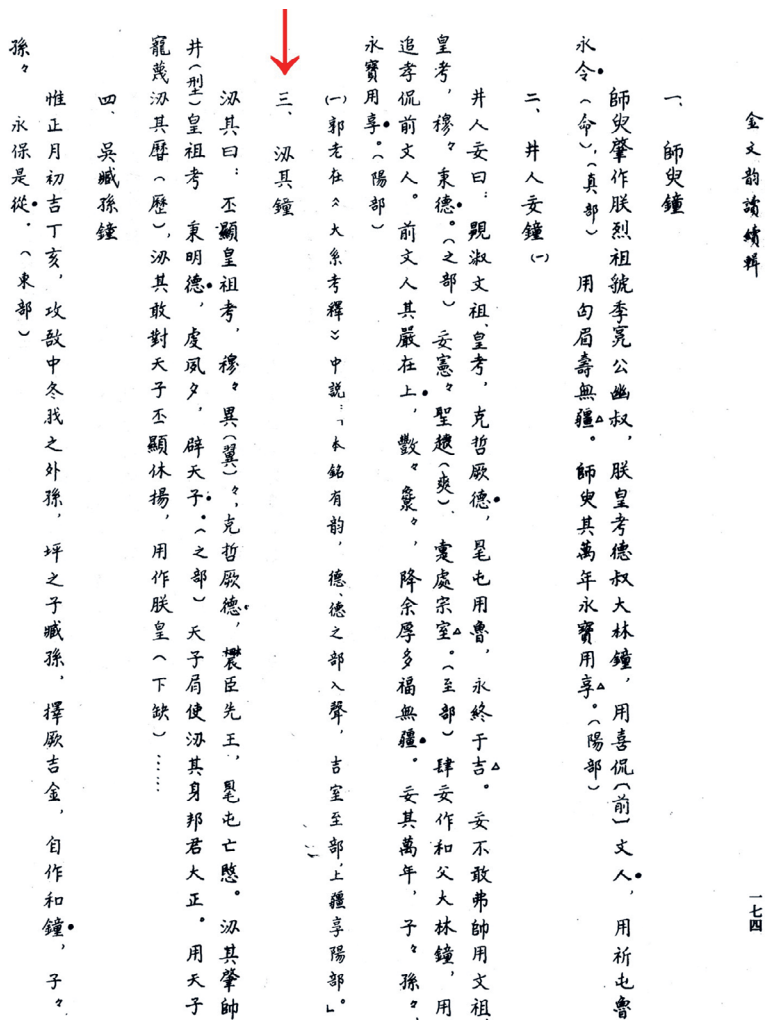 金文韵讀續輯
一七四
一、師㝨鐘
師㝨肇作朕烈祖虢季寬公幽叔，朕皇考德叔大林鐘，用喜侃〔前〕文人，用祈屯魯
永令（命），（真部）用匃眉壽無疆。師㝨其萬年永寶用享。（陽部）
二、井人妄鐘㈠
井人妄曰：覭淑文祖、皇考，克哲厥德，㝵屯用魯，永終于吉。妄不敢弗帥用文祖、
皇考，穆々秉德。（之部）妄憲々聖趩（爽），疐處宗室。（至部）肆妄作和父大林鐘，用
追孝侃前文人。前文人其嚴在上，數々㲋々，降余厚多福無疆。妄其萬年，子々孫々，
永寶用享。（陽部）
㈠郭老在《大系考釋》中説：「本銘有韵，德、德之部入聲，吉室至部，上疆享陽部。」
三、汈其鐘
汈其曰：丕顯皇祖考，穆々異（翼）々，克哲厥德，農臣先王，㝵屯亡愍。汈其肇帥
井（型）皇祖考秉明德，虔夙夕，辟天子。（之部）天子肩使汈其身邦君大正。用天子
寵蔑汈其曆（歷），汈其敢對天子丕顯休揚，用作朕皇（下缺）……
四、吳臧孫鐘
惟正月初吉丁亥，攻敔中冬戕之外孫，坪之子臧孫，擇厥吉金，自作和鐘，子々
孫々永保是從。（東部）